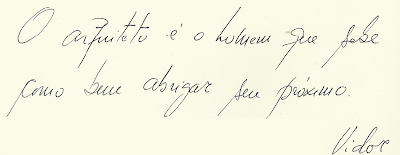 O arquiteto é o homem que sabe
como bem abrigar seu próximo.
Vidor